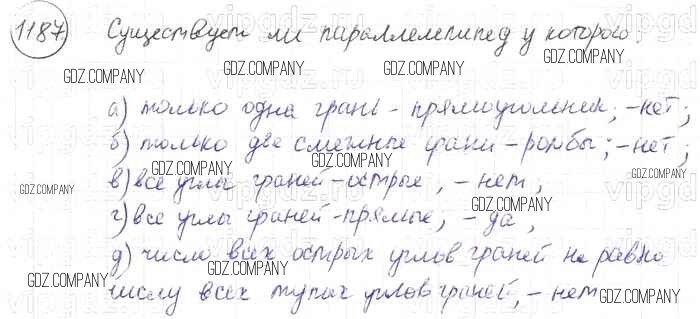 1187 Существует ли параллелепипед у которого:
а) только одна грань - прямоугольник; - нет;
б) только две смежные грани - ромбы; - нет;
в) все углы граней - острые, - нет;
г) все углы граней - прямые; - да,
д) число всех острых углов граней не равно
числу всех тупых углов граней, - нет
GDZ.COMPANY
GDZ.COMPANY
GDZ.COMPANY
GDZ.COMPANY
GDZ.COMPANY
GDZ.COMPANY
GDZ.COMPANY
GDZ.COMPANY
GDZ.COMPANY
GDZ.COMPANY
GDZ.COMPANY
GDZ.COMPANY